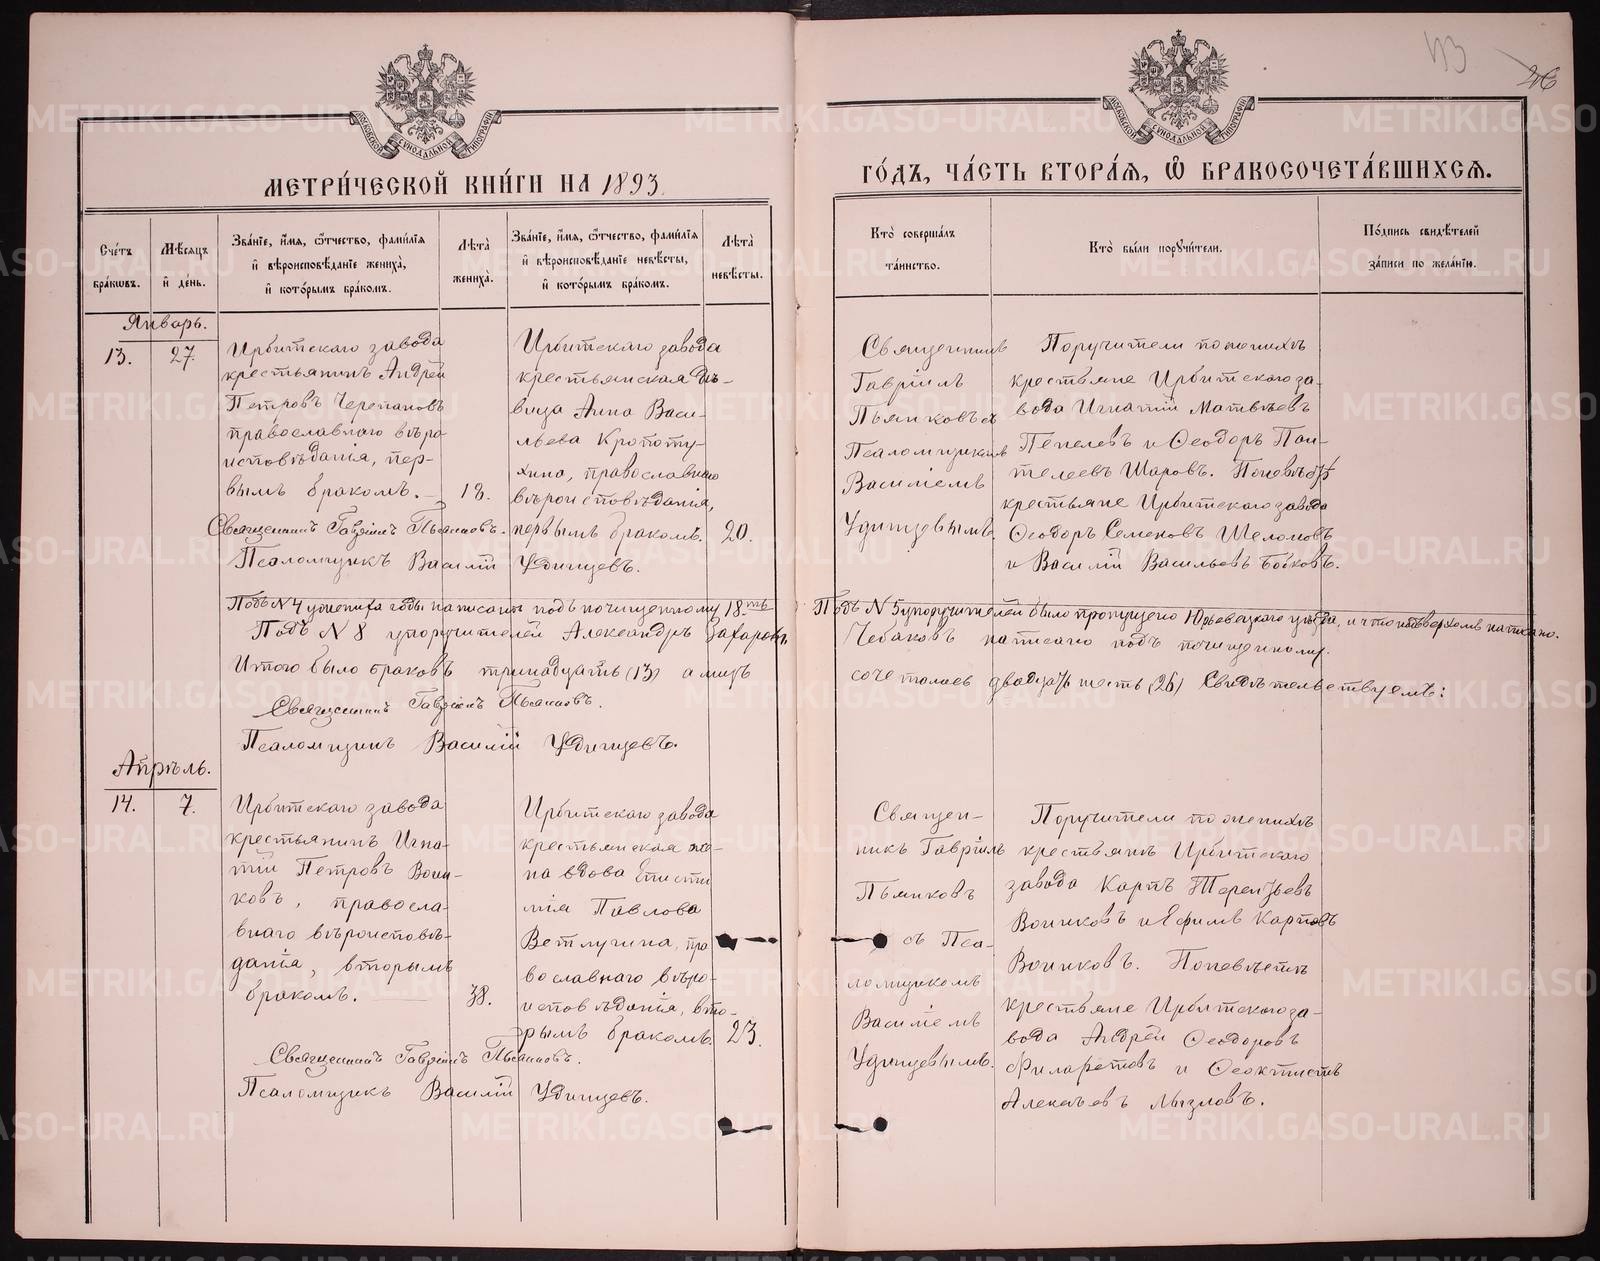 МЕТРИ́ЧЕСКОЙ КНИ́ГИ НА 1893
ГО́ДЪ, ЧА́СТЬ ВТОРА́Я, Ѽ БРАКОСОЧЕТА́ВШИХСЯ.
Сче́тъ бра́кѡвъ.
Мѣ́сяцъ и҆ де́нь.
Зва́нїе, и҆́мя, ѻ҆́тчество, фами́лїя
и҆ вѣроисповѣ́данїе жениха̀,
и҆ кото́рымъ бра́комъ.
Лѣта̀ жениха̀.
Зва́нїе, и҆́мя, ѻ҆́тчество, фами́лїя
и҆ вѣроисповѣ́данїе невѣ́сты,
и҆ кото́рымъ бра́комъ.
Лѣта̀ невѣ́сты.
Кто̀ соверша́лъ
та́инство.
Кто̀ бы́ли поручи́тели.
По́дпись свидѣ́телей
за́писи по жела́нїю.
Январь.
13.
27.
Ирбитскаго завода
крестьянинъ Андрей
Петровъ Черепановъ
православнаго вѣро
исповѣданія, пер-
вымъ бракомъ.
18.
Ирбитскаго завода
крестьянская дѣ-
вица Анна Васи-
льева Кропоту-
хина, православнаго
вѣроисповѣданія,
первымъ бракомъ.
20.
Священникъ
Гавріилъ
Пьянковъ съ
Псаломщикомъ
Василіемъ
Удинцевымъ.
Поручители по женихѣ
крестьяне Ирбитскаго за-
вода Игнатій Матвѣевъ
Пепелевъ и Ѳеодоръ Пан-
телеевъ Шаровъ. По невѣстѣ
крестьяне Ирбитскаго завода
Ѳеодоръ Семеновъ Шелоновъ
и Василій Васильевъ Бойковъ.
Священникъ Гавріилъ Пьянковъ.
Псаломщикъ Василій Удинцевъ.
Подъ №4 у жениха годы написаны подъ почищенному 18-ть
Подъ №5 у поручителей было пропущено Юрьевецкаго уѣзда, и что надъ верхомъ написано.
Подъ №8 у поручителей Александръ Захаровъ
Чебаковъ написано подъ почищенному.
Итого было браковъ тринадцать (13) а лицъ
сочеталось двадцать шесть (26) Свидѣтельствуемъ:
Священникъ Гавріилъ Пьянковъ.
Псаломщикъ Василій Удинцевъ.
Апрѣль.
14.
7.
Ирбитскаго завода
крестьянинъ Игна-
тій Петровъ Воин-
ковъ, правосла-
внаго вѣроисповѣ-
данія, вторымъ
бракомъ.
38.
Ирбитскаго завода
крестьянская же-
на вдова Еписти
мія Павлова
Ветлугина, пра
вославнаго вѣро-
исповѣданія, вто-
рымъ бракомъ.
23.
Священ-
никъ Гавріилъ
Пьянковъ
съ Пса-
ломщикомъ
Василіемъ
Удинцевымъ.
Поручители по женихѣ
крестьяне Ирбитскаго
завода Карпъ Терентьевъ
Воинковъ и Ефимъ Карповъ
Воинковъ. По невѣстѣ
крестьяне Ирбитскаго за-
вода Андрей Ѳеодоровъ
Филаретовъ и Ѳеоктистъ
Алексѣевъ Мызловъ.
Священникъ Гавріилъ Пьянковъ.
Псаломщикъ Василій Удинцевъ.
METRIKI.GASO-URAL.RU